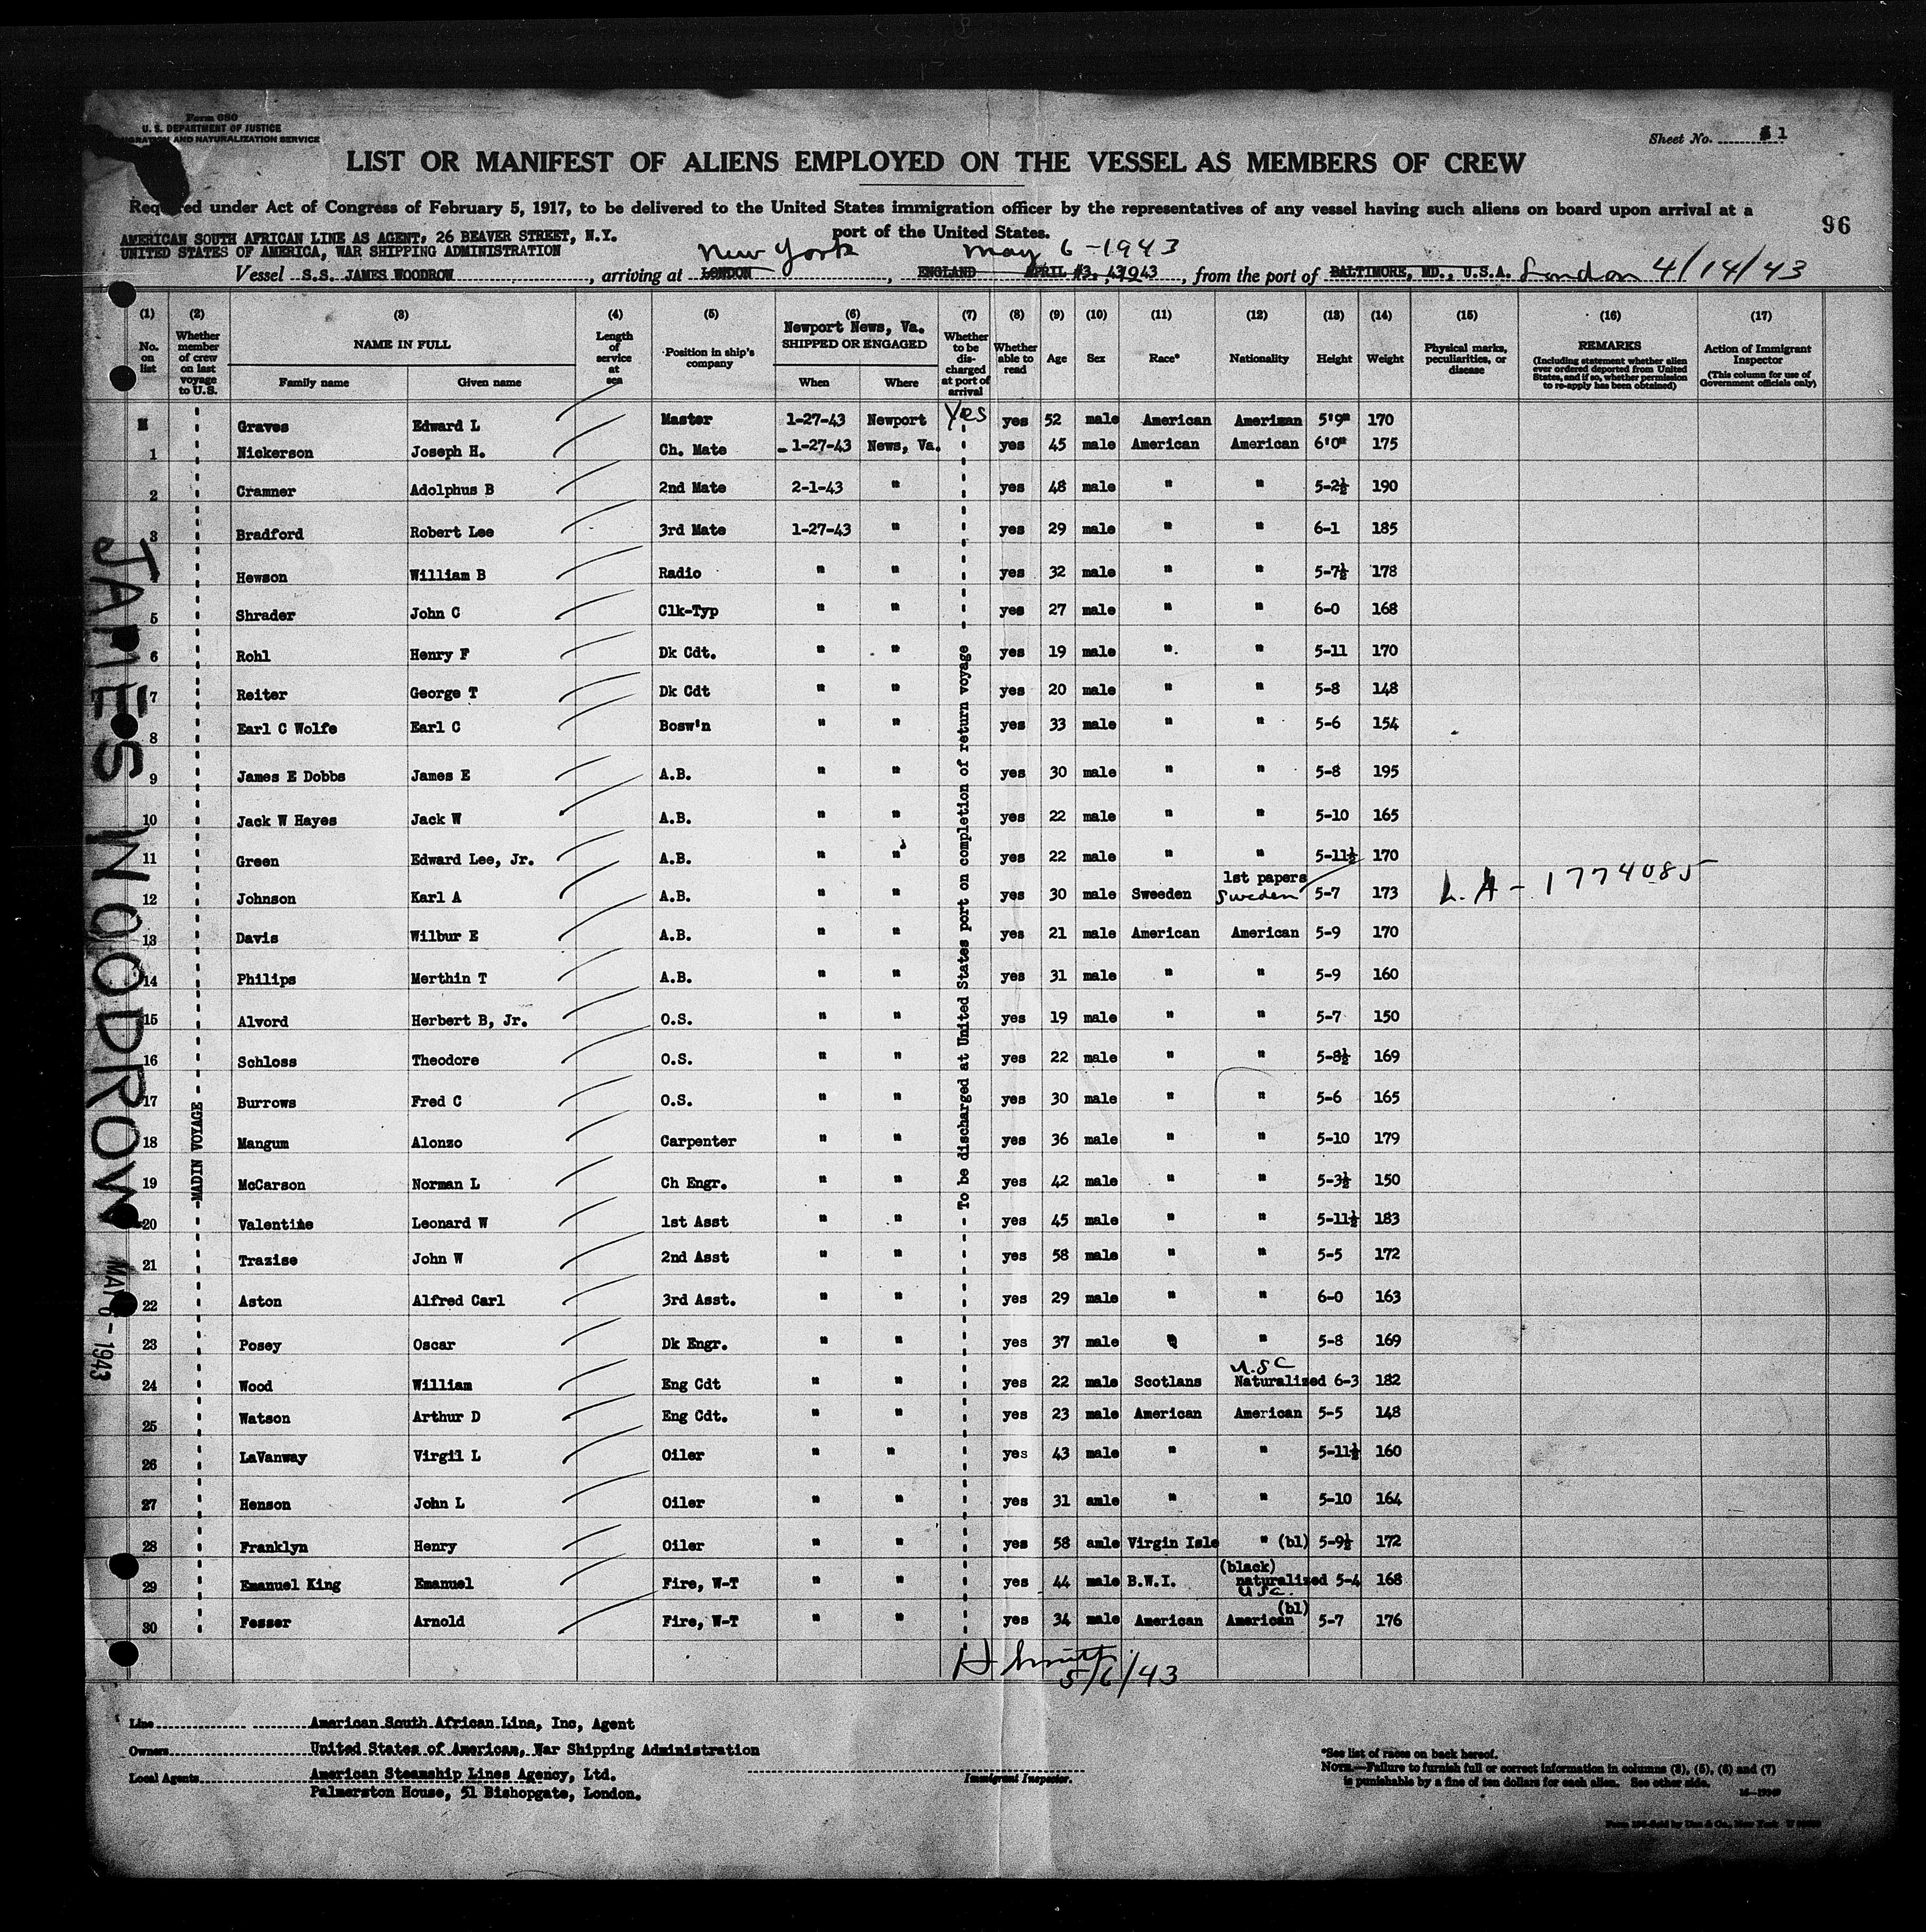 Form 680
U. S. DEPARTMENT OF JUSTICE
AND NATURALIZATION SERVICE
Sheet No. 1
LIST OR MANIFEST OF ALIENS EMPLOYED ON THE VESSEL AS MEMBERS OF CREW
Required under Act of Congress of February 5, 1917, to be delivered to the United States immigration officer by the representatives of any vessel having such aliens on board upon arrival at a
port of the United States.
96
AMERICAN SOUTH AFRICAN LINE AS AGENT, 26 BEAVER STREET, N.Y.
UNITED STATES OF AMERICA, WAR SHIPPING ADMINISTRATION
New York May 6-1943
Vessel S.S. JAMES WOODROW, arriving at LONDON, ENGLAND APRIL #3, 43, 1943, from the port of BALTIMORE, MD., U.S.A. London 4/14/43
(1) (2) (3) (4) (5) (6) (7) (8) (9) (10) (11) (12) (13) (14) (15) (16) (17)
No. on list
Whether member of crew on last voyage to U.S.
NAME IN FULL
Family name Given name
Length of service at sea
Position in ship's company
Newport News, Va.
SHIPPED OR ENGAGED
When Where
Whether to be discharged at port of arrival
Whether able to read
Age
Sex
Race*
Nationality
Height
Weight
Physical marks, peculiarities, or disease
REMARKS
(Including statement whether alien ever ordered deported from United States, and if so, whether permission to re-apply has been obtained)
Action of Immigrant Inspector
(This column for use of Government officials only)
Graves Edward L Master 1-27-43 Newport Yes yes 52 male American Ameriman 5'9" 170
1 Nickerson Joseph H. Ch. Mate 1-27-43 News, Va. yes 45 male American American 6'0" 175
2 Cramner Adolphus B 2nd Mate 2-1-43 " yes 48 male " " 5-2½ 190
3 Bradford Robert Lee 3rd Mate 1-27-43 " yes 29 male " " 6-1 185
4 Hewson William B Radio " " yes 32 male " " 5-7½ 178
5 Shrader John C Clk-Typ " " yes 27 male " " 6-0 168
6 Rohl Henry F Dk Cdt. " " yes 19 male " " 5-11 170
7 Reiter George T Dk Cdt " " yes 20 male " " 5-8 148
8 Earl C Wolfe Earl C Bosw'n " " yes 33 male " " 5-6 154
9 James E Dobbs James E A.B. " " yes 30 male " " 5-8 195
10 Jack W Hayes Jack W A.B. " " yes 22 male " " 5-10 165
11 Green Edward Lee, Jr. A.B. " " yes 22 male " " 5-11½ 170
12 Johnson Karl A A.B. " " yes 30 male Sweeden 1st papers Sweden 5-7 173 L.A - 1774085
13 Davis Wilbur E A.B. " " yes 21 male American American 5-9 170
14 Philips Merthin T A.B. " " yes 31 male " " 5-9 160
15 Alvord Herbert B, Jr. O.S. " " yes 19 male " " 5-7 150
16 Schloss Theodore O.S. " " yes 22 male " " 5-8½ 169
17 Burrows Fred C O.S. " " yes 30 male " " 5-6 165
18 Mangum Alonzo Carpenter " " yes 36 male " " 5-10 179
19 McCarson Norman L Ch Engr. " " yes 42 male " " 5-3½ 150
20 Valentine Leonard W 1st Asst " " yes 45 male " " 5-11½ 183
21 Trazise John W 2nd Asst " " yes 58 male " " 5-5 172
22 Aston Alfred Carl 3rd Asst. " " yes 29 male " " 6-0 163
23 Posey Oscar Dk Engr. " " yes 37 male " " 5-8 169
24 Wood William Eng Cdt " " yes 22 male Scotlans U.S.C Naturalized 6-3 182
25 Watson Arthur D Eng Cdt. " " yes 23 male American American 5-5 148
26 LaVanway Virgil L Oiler " " yes 43 male " " 5-11½ 160
27 Henson John L Oiler " " yes 31 amle " " 5-10 164
28 Franklyn Henry Oiler " " yes 58 amle Virgin Isle " (bl) 5-9½ 172
29 Emanuel King Emanuel Fire, W-T " " yes 44 male B.W.I. (black) naturalized USC. 5-4 168
30 Fesser Arnold Fire, W-T " " yes 34 male American American (bl) 5-7 176
MADIN VOYAGE
To be discharged at United States port on completion of return voyage
JAMES WOODROW
MAY 6-1943
H Smith
5/6/43
Line American South African Line, Inc, Agent
Owners United States of American, War Shipping Administration
Local Agents American Steamship Lines Agency, Ltd.
Palmerston House, 51 Bishopgate, London.
Immigrant Inspector.
*See list of races on back hereof.
NOTE.—Failure to furnish full or correct information in columns (3), (5), (6) and (7)
is punishable by a fine of ten dollars for each alien. See other side.